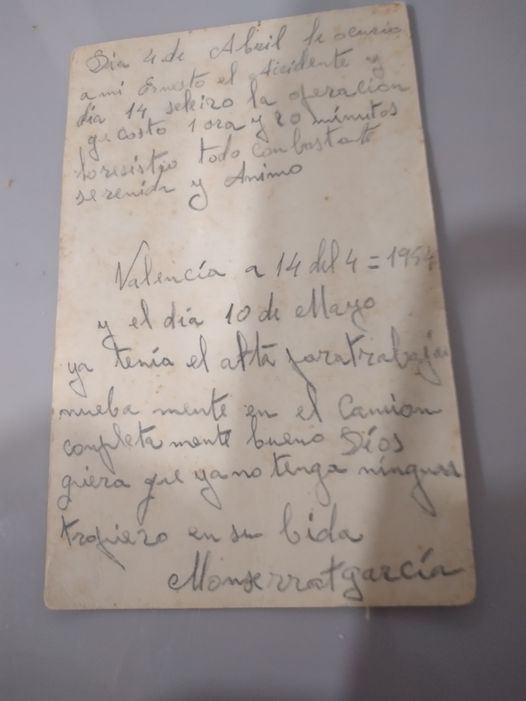 Dia 4 de Abril le ocurio
a mi Ernesto el Acidente y
dia 14 seleizo la operación
qe costo 1 ora y 20 minutos
loresistio todo con bastante
serenida y Animo
Valencía a 14 del 4 = 1954
y el día 10 de Mayo
ya tenía el alta paratrabajar
nueba mente en el Camion
completa mente bueno Díos
quiera que ya no tenga ningun
tropiezo en su bida
Monserrat garcía